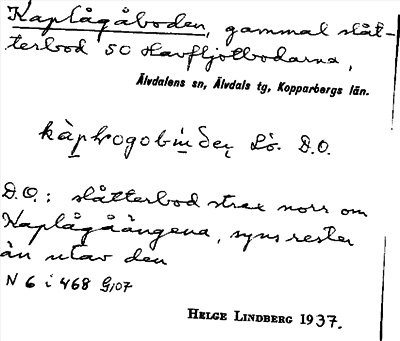 Kaplågåboden, gammal slåt-
terbod SO Havfljotbodarna,
Älvdalens sn, Älvdals tg, Kopparbergs län.
Lö. D.O.
D.O.: slåtterbod strax norr om
Kaplågåängena, syns rester
än utav den
N 6 i 468 G107
HELGE LINDBERG 1937.